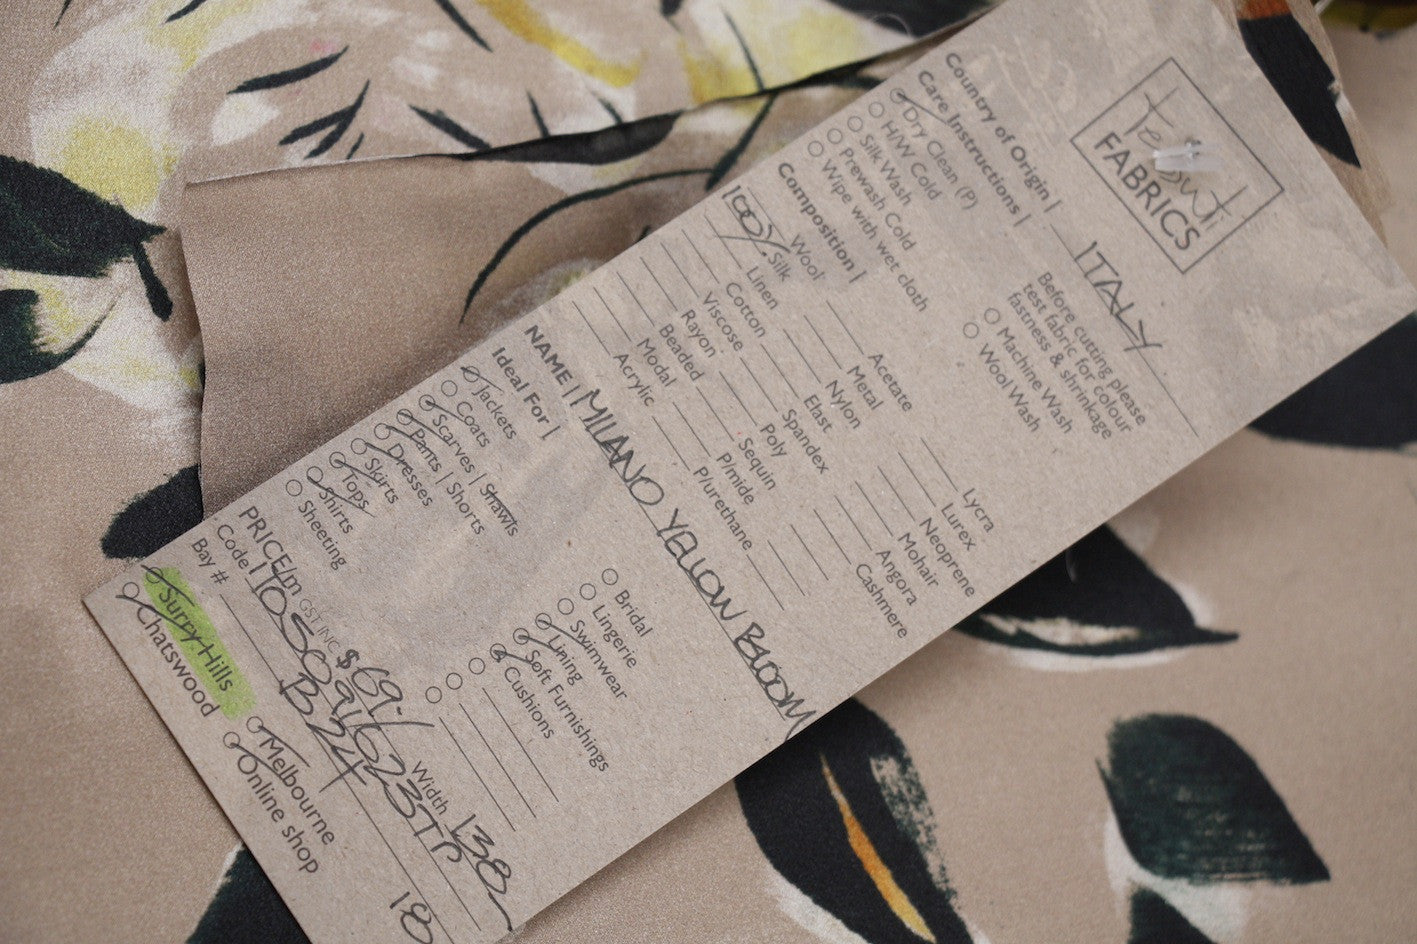 Tessuti
FABRICS
Country of Origin | ITALY
Care Instructions |
Dry Clean (P)
H/W Cold
Silk Wash
Prewash Cold
Wipe with wet cloth
Before cutting please
test fabric for colour
fastness & shrinkage
Machine Wash
Wool Wash
Composition |
Wool
100% Silk
Linen
Cotton
Viscose
Rayon
Beaded
Modal
Acrylic
Acetate
Metal
Nylon
Elast
Spandex
Poly
Sequin
P/mide
P/urethane
Lycra
Lurex
Neoprene
Mohair
Angora
Cashmere
NAME | MILANO YELLOW BLOOM
Ideal For |
Jackets
Coats
Scarves | Shawls
Pants | Shorts
Dresses
Skirts
Tops
Shirts
Sheeting
Bridal
Lingerie
Swimwear
Lining
Soft Furnishings
Cushions
PRICE/m GST INC $69./ Width 138
Code
Bay # B24
18
Surry Hills
Chatswood
Melbourne
Online shop